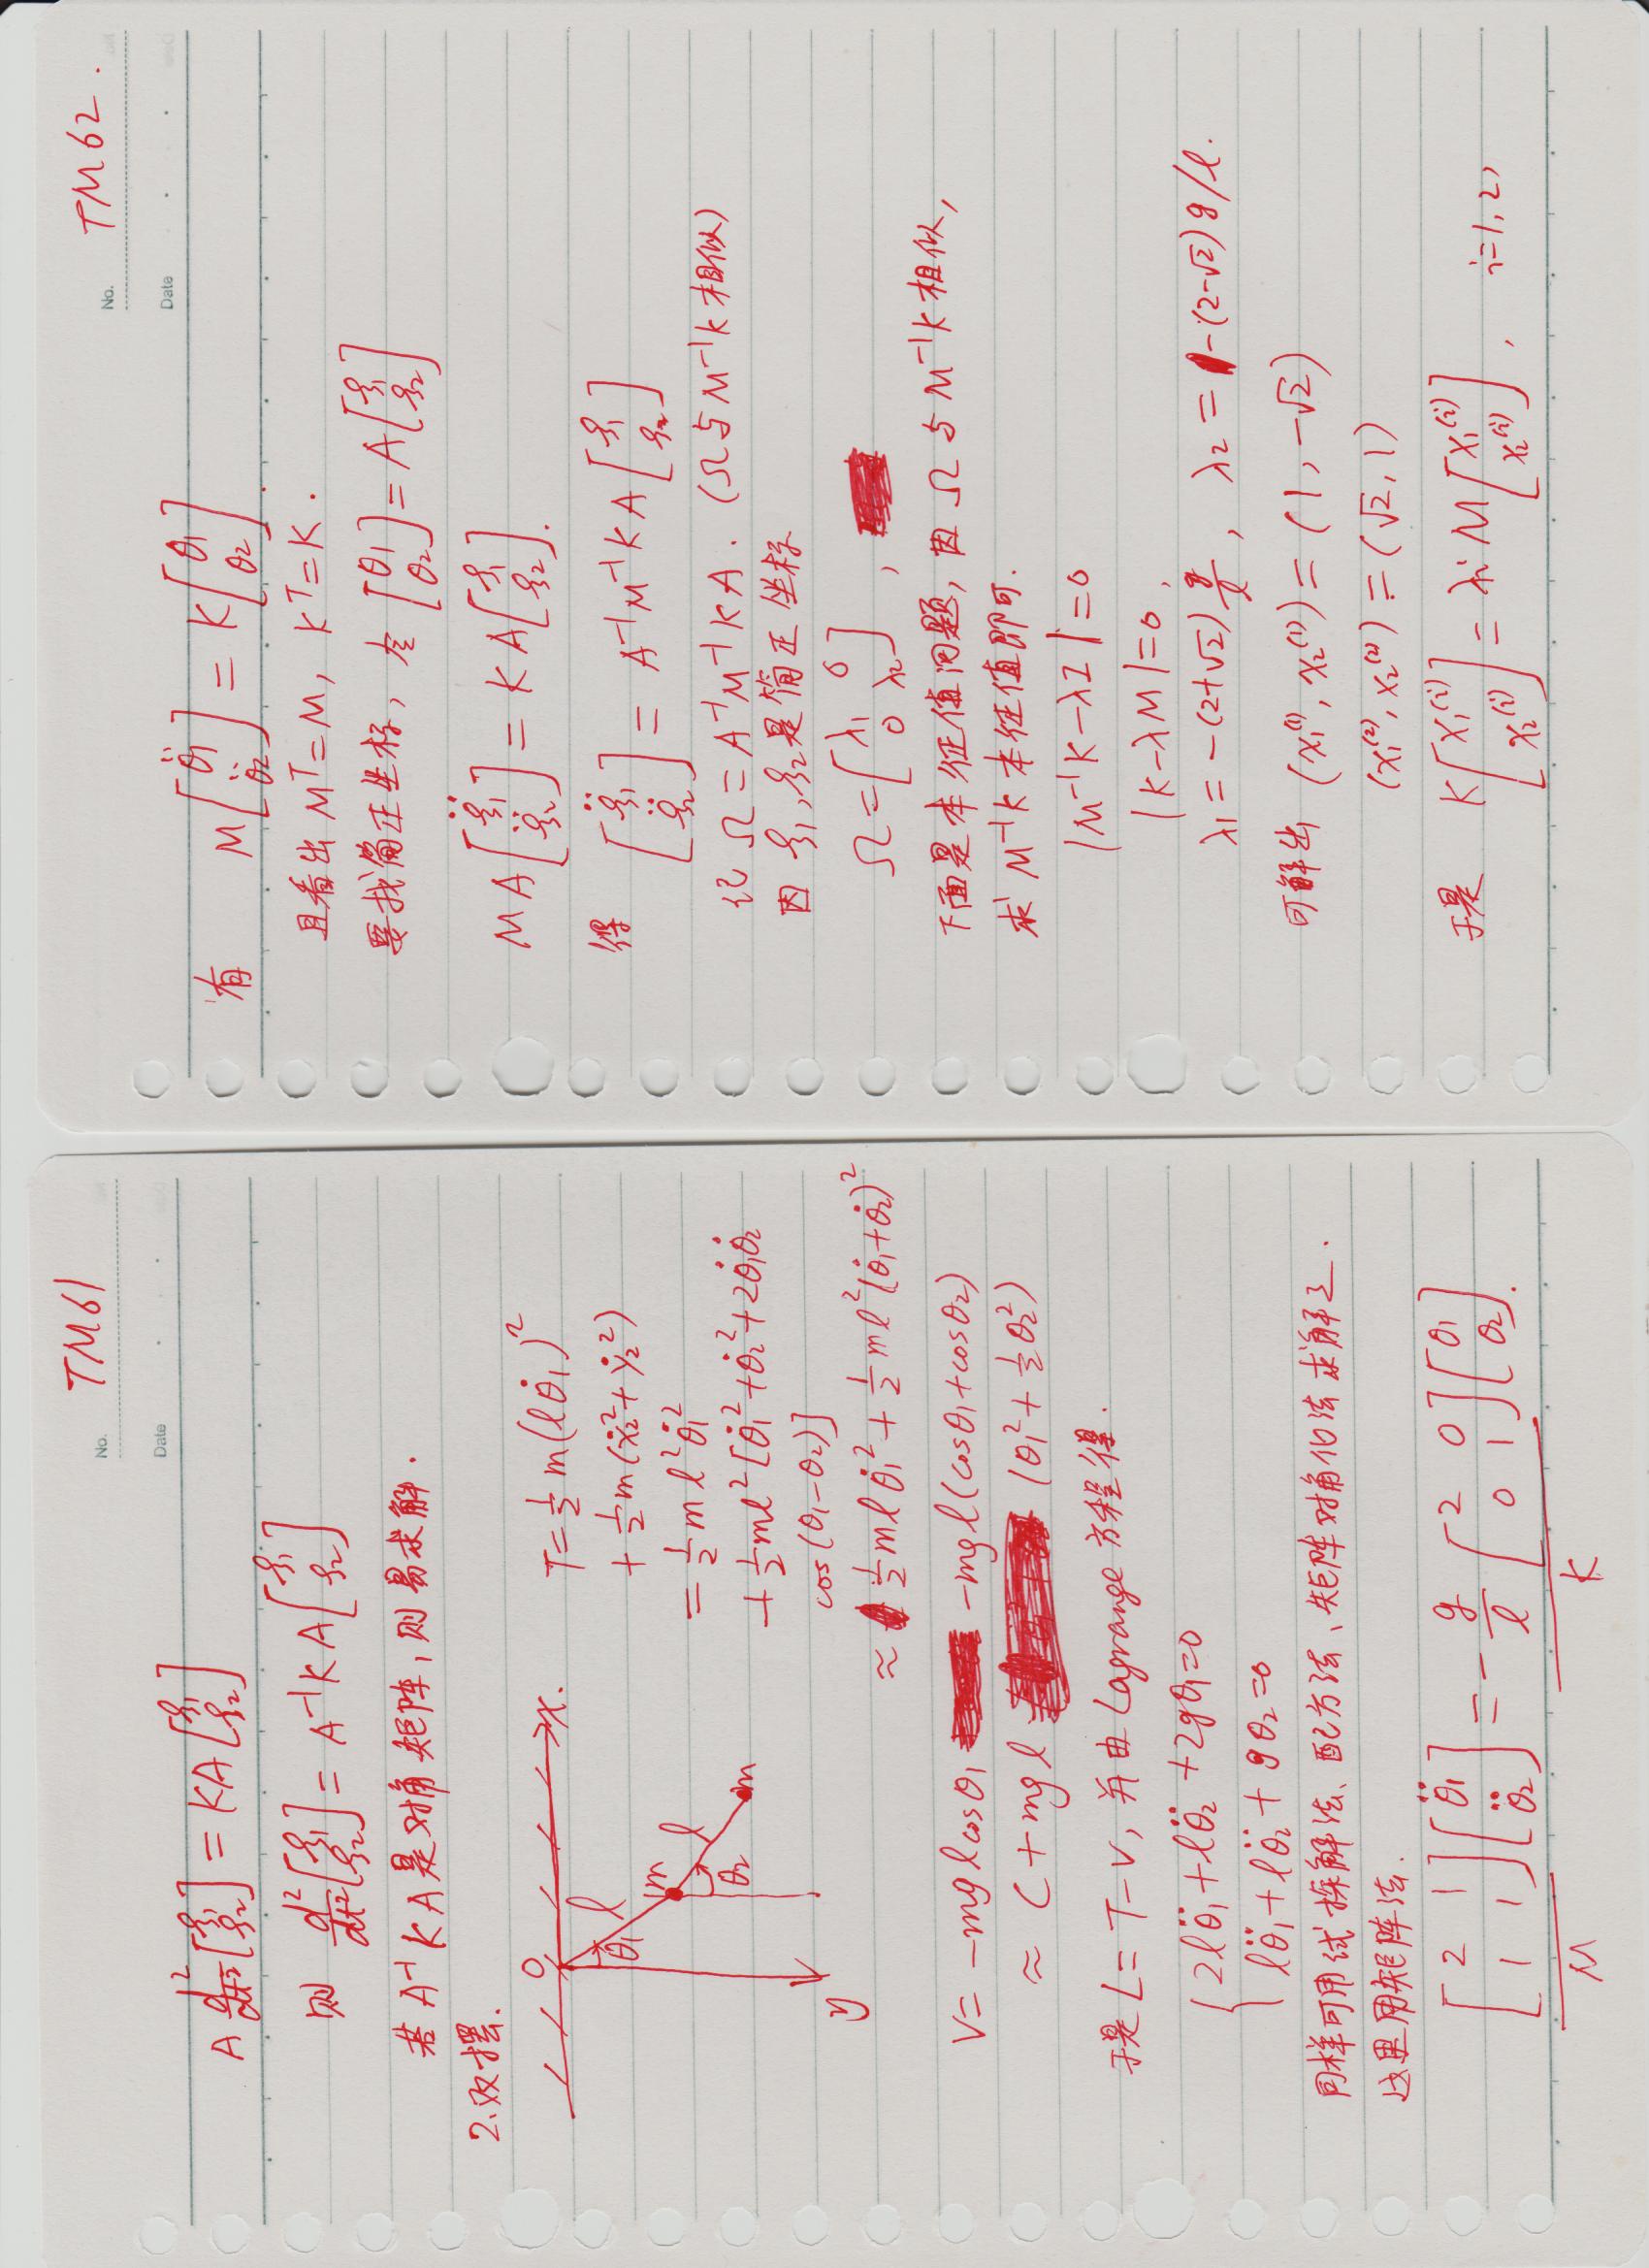 No. TM61
Date
A d²/dt² [ξ₁ ξ₂] = KA [ξ₁ ξ₂]
则 d²/dt² [ξ₁ ξ₂] = A⁻¹KA [ξ₁ ξ₂]
若 A⁻¹KA 是对角矩阵, 则易求解.
2. 双摆.
O x.
θ₁ l
m
l
θ₂ m
y
T = ½ m(lθ̇₁)²
+ ½ m(ẋ₂² + ẏ₂²)
= ½ m l² θ̇₁²
+ ½ ml² [θ̇₁² + θ̇₂² + 2θ̇₁θ̇₂
cos(θ₁-θ₂)]
≈ ½ ml θ̇₁² + ½ ml² (θ̇₁+θ̇₂)²
V = -mgl cosθ₁ -mgl(cosθ₁+cosθ₂)
≈ C + mgl (θ₁² + ½θ₂²)
于是 L = T-V, 并由 Lagrange 方程得.
{ 2lθ̈₁ + lθ̈₂ + 2gθ₁ = 0
lθ̈₁ + lθ̈₂ + gθ₂ = 0
同样可用试探解法、配方法、矩阵对角化法求解之.
这里用矩阵法.
[2 1; 1 1] [θ̈₁ θ̈₂] = - g/l [2 0; 0 1] [θ₁ θ₂].
M K
No. TM62.
Date
有 M [θ̈₁ θ̈₂] = K [θ₁ θ₂].
且看出 Mᵀ = M, Kᵀ = K.
要找简正坐标, 令 [θ₁ θ₂] = A [ξ₁ ξ₂]
MA [ξ̈₁ ξ̈₂] = KA [ξ₁ ξ₂].
得 [ξ̈₁ ξ̈₂] = A⁻¹M⁻¹KA [ξ₁ ξ₂]
记 Ω = A⁻¹M⁻¹KA. (Ω与M⁻¹K相似)
因 ξ₁, ξ₂ 是简正坐标
Ω = [λ₁ 0; 0 λ₂],
下面是本征值问题, 因 Ω 与 M⁻¹K 相似,
求 M⁻¹K 本征值即可.
|M⁻¹K - λI| = 0
|K - λM| = 0,
λ₁ = -(2+√2) g/l, λ₂ = -(2-√2) g/l.
可解出 (x₁⁽¹⁾, x₂⁽¹⁾) = (1, -√2)
(x₁⁽²⁾, x₂⁽²⁾) = (√2, 1)
于是 K [x₁⁽ⁱ⁾ x₂⁽ⁱ⁾] = λᵢ M [x₁⁽ⁱ⁾ x₂⁽ⁱ⁾], i=1, 2,